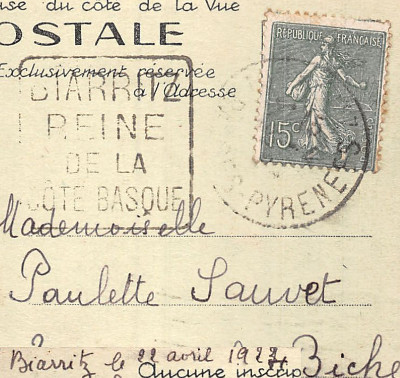 du côte de la Vue
OSTALE
Exclusivement réservée
à l'adresse
BIARRITZ
REINE
DE LA
CÔTE BASQUE
REPUBLIQUE FRANÇAISE
15c
PYRENEES
Mademoiselle
Paulette Sauvet
Biarritz le 22 avril 1924
Aucune inscrip